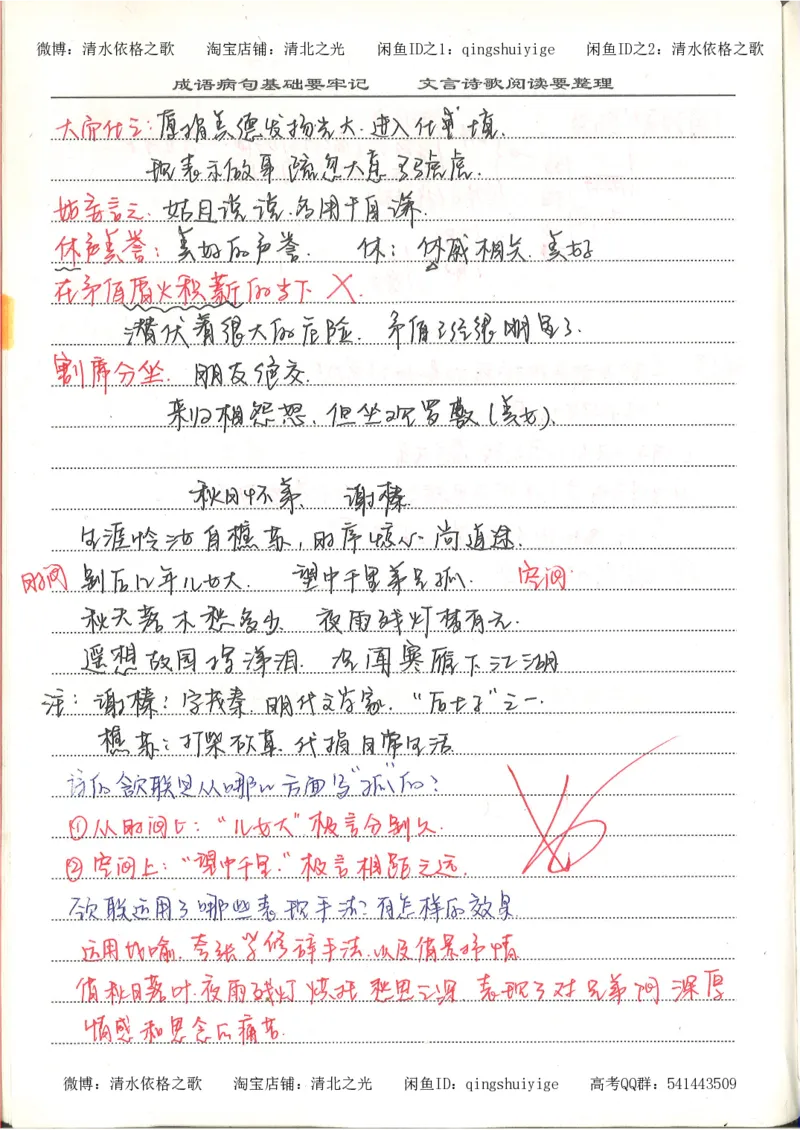 微博：清水依格之歌 淘宝店铺：清北之光 闲鱼ID之1：qingshuiyige 闲鱼ID之2：清水依格之歌
成语病句基础要牢记 文言诗歌阅读要整理
大而化之：原指美德发扬光大.进入化境.
现表示做事疏忽大意马马虎虎.
姑妄言之. 姑且说说.多用于自谦.
休声美誉：美好的声誉. 休：休戚相关.美好
在矛盾厝火积薪的当下 ×.
潜伏着很大的危险. 矛盾已经很明显了.
割席分坐. 朋友绝交.
来归相怨怒.但坐观罗敷(美女).
秋日怀弟. 谢榛.
生涯怜汝自樵苏,时序惊心尚道途.
时间 别后几年儿女大. 望中千里弟兄孤. 空间
秋天落木愁多少 夜雨残灯梦有无.
遥想故园挥涕泪. 况闻寒雁下江湖
注：谢榛：字茂秦 明代文学家. “后七子”之一.
樵苏：打柴砍草.代指日常生活
诗的颔联是从哪几方面写“孤”的？
①从时间上：“儿女大”极言分别久.
②空间上：“望中千里.”极言相距之远.
颈联运用了哪些表现手法？有怎样的效果
运用比喻.夸张等修辞手法.以及借景抒情
借秋日落叶.夜雨残灯 烘托愁思之深.表现了对兄弟间深厚
情感和思念的痛苦.
微博：清水依格之歌 淘宝店铺：清北之光 闲鱼ID：qingshuiyige 高考QQ群：541443509